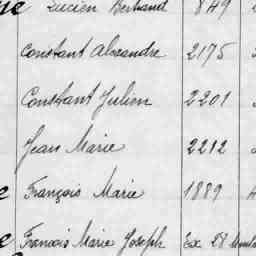 Lucien Bertrand 849
Constant Alexandre 2175
Constant Julien 2201
Jean Marie 2212
François Marie 1889
François Marie Joseph Ex 28